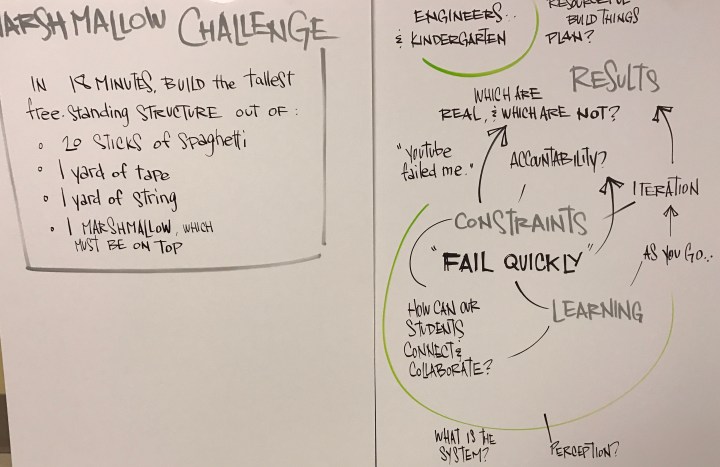 MARSHMALLOW CHALLENGE
IN 18 MINUTES, BUILD the tallest
free-standing STRUCTURE OUT OF:
• 20 STICKS of Spaghetti
• 1 yard of tape
• 1 yard of string
• 1 MARSHMALLOW, WHICH
MUST BE ON TOP
ENGINEERS..
& KINDERGARTEN
RESOURCEFUL
BUILD THINGS
PLAN?
RESULTS
WHICH ARE
REAL, & WHICH ARE NOT?
"YOUTUBE
failed me."
ACCOUNTABILITY?
ITERATION
CONSTRAINTS
"FAIL QUICKLY"
AS YOU GO...
LEARNING
HOW CAN OUR
STUDENTS
CONNECT &
COLLABORATE?
WHAT IS the
SYSTEM?
PERCEPTION?